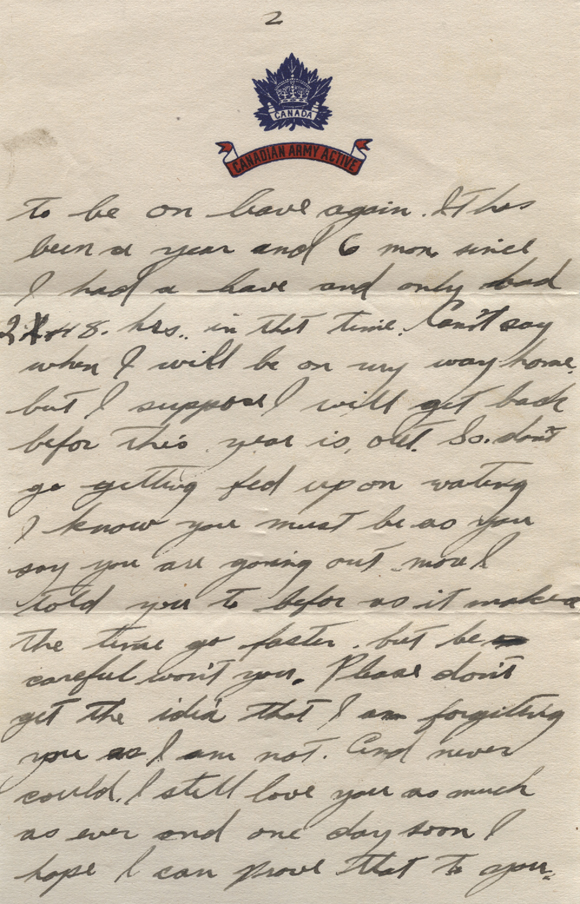 2
CANADA
CANADIAN ARMY ACTIVE
to be on leave again. It has
been a year and 6 mon since
I had a leave and only had
2 48. hrs.. in that time. Can't say
when I will be on my way home,
but I suppose I will get back
befor this year is, out. So. don't
go getting fed up on wating
I know you must be as you
say you are going out more I
told you to befor as it makes
the time go faster. but be
careful won't you. Please don't
get the idia that I am forgitting
you as I am not. And never
could. I still love you as much
as ever and one day soon I
hope I can prove that to you.